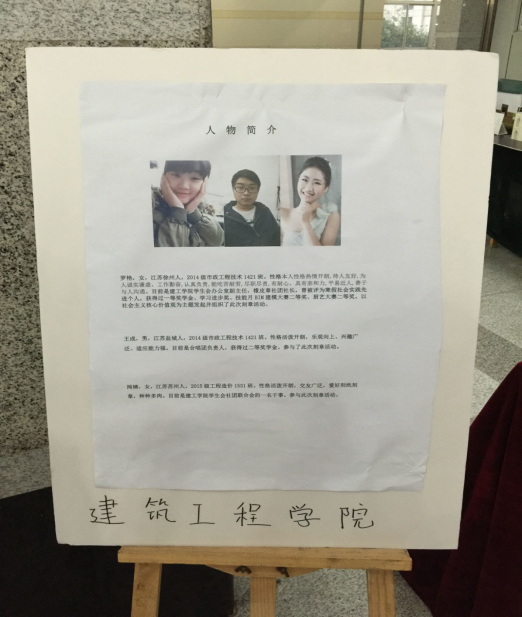 人物简介
罗艳，女，江苏徐州人，2014级市政工程技术1421班，性格本人性格热情开朗，待人友好，为
人诚实谦虚，工作勤奋，认真负责，能吃苦耐劳，尽职尽责，有耐心，具有亲和力，平易近人，善于
与人沟通。目前是建工学院学生会办公室副主任，橡皮章社团社长，曾被评为寒假社会实践先
进个人，获得过一等奖学金，学习进步奖，技能月BIM建模大赛二等奖，厨艺大赛二等奖，以
社会主义核心价值观为主题发起并组织了此次刻章活动。
王成，男，江苏盐城人，2014级市政工程技术1421班，性格活泼开朗，乐观向上，兴趣广
泛，适应能力强，目前是合唱团负责人，获得过二等奖学金，参与了此次刻章活动。
女，江苏苏州人，2015级工程造价1501班，性格活泼开朗，交友广泛，爱好和纸刻
章，种种多肉，目前是建工学院学生会社团联合会的一名干事，参与此次刻章活动。
建筑工程学院